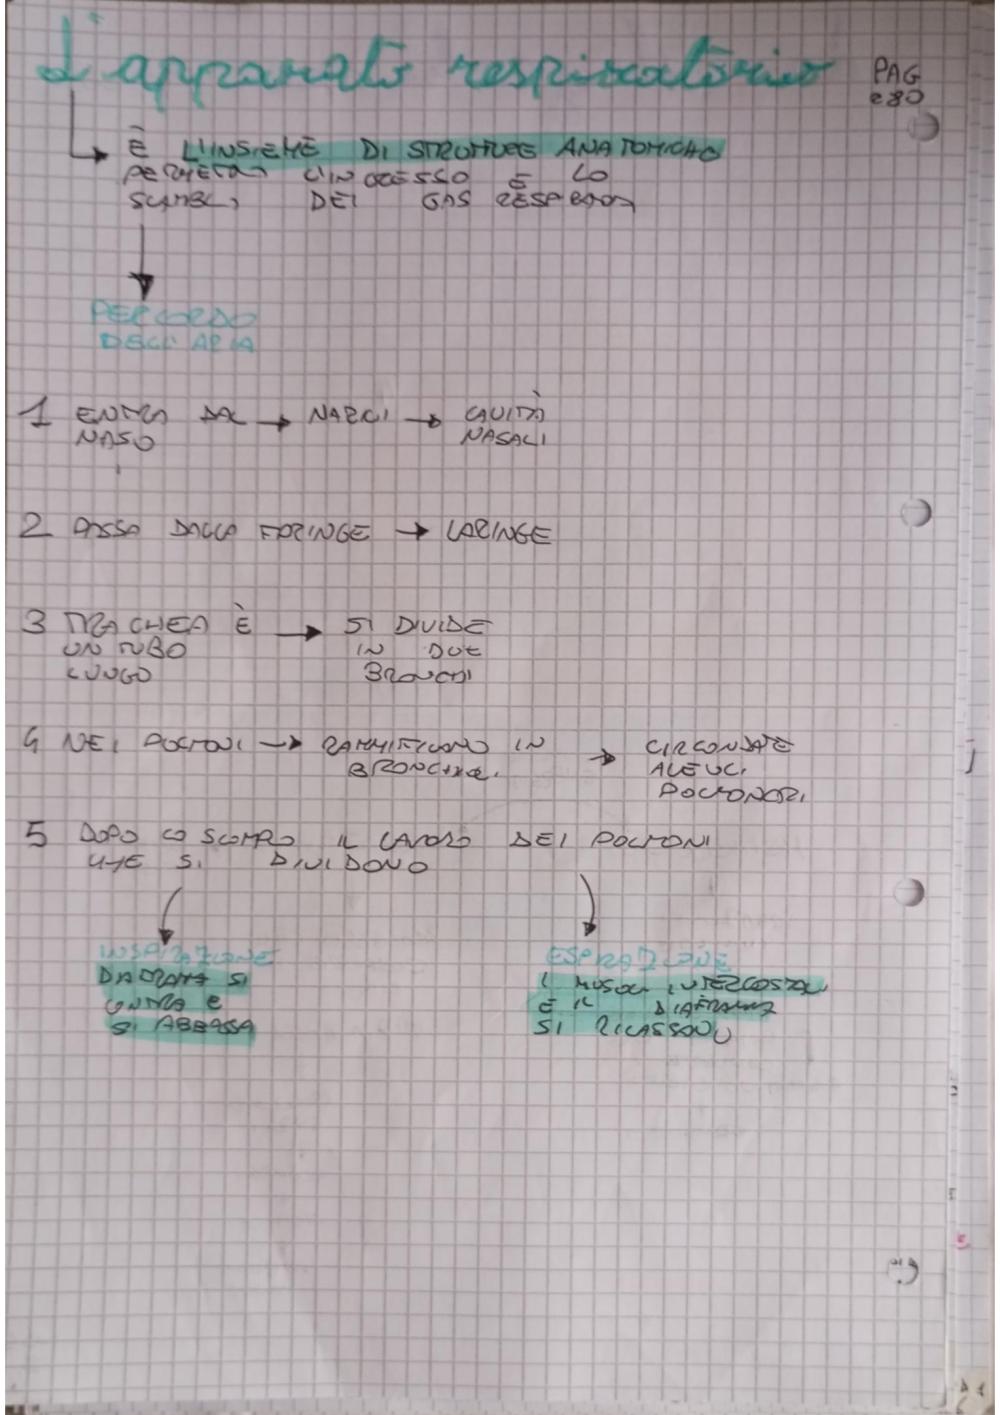 L'apparato respiratorio
PAG
280
È L'INSIEME DI STRUTTURE ANATOMICHE
L'INGRESSO E LO
DEI GAS
PERCORSO
DELL'ARIA
1 ENTRA DAL → NARICI → CAVITÀ
NASO NASALI
2 PASSA DALLA FARINGE → LARINGE
3 TRACHEA È → SI DIVIDE
UN TUBO IN DUE
LUNGO BRONCHI
4 NEI POLMONI → IN → CIRCONDATE
ALVEOLI
POLMONARI
5 DOPO LO IL LAVORO DEI POLMONI
CHE SI DIVIDONO
INSPIRAZIONE
SI
E
SI ABBASSA
ESPIRAZIONE
I MUSCOLI INTERCOSTALI
E IL DIAFRAMMA
SI RILASSONO